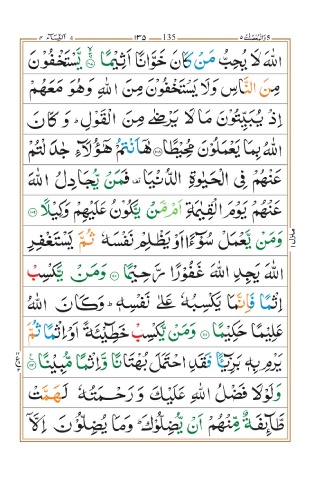 النسآء ٤ ١٣٥ 135 والمحصنت ٥
اللّٰهَ لَا يُحِبُّ مَنْ كَانَ خَوَّانًا اَثِيْمًا ۙ يَّسْتَخْفُوْنَ
مِنَ النَّاسِ وَلَا يَسْتَخْفُوْنَ مِنَ اللّٰهِ وَهُوَ مَعَهُمْ
اِذْ يُبَيِّتُوْنَ مَا لَا يَرْضٰى مِنَ الْقَوْلِ ؕ وَ كَانَ
اللّٰهُ بِمَا يَعْمَلُوْنَ مُحِيْطًا ۝ هٰۤاَنْتُمْ هٰۤؤُلَآءِ جٰدَلْتُمْ
عَنْهُمْ فِى الْحَيٰوةِ الدُّنْيَا فَمَنْ يُّجَادِلُ اللّٰهَ
عَنْهُمْ يَوْمَ الْقِيٰمَةِ اَمْ مَّنْ يَّكُوْنُ عَلَيْهِمْ وَكِيْلًا ۝
وَمَنْ يَّعْمَلْ سُوْٓءًا اَوْ يَظْلِمْ نَفْسَهٗ ثُمَّ يَسْتَغْفِرِ
اللّٰهَ يَجِدِ اللّٰهَ غَفُوْرًا رَّحِيْمًا ۝ وَمَنْ يَّكْسِبْ
اِثْمًا فَاِنَّمَا يَكْسِبُهٗ عَلٰى نَفْسِهٖ ؕ وَكَانَ اللّٰهُ
عَلِيْمًا حَكِيْمًا ۝ وَمَنْ يَّكْسِبْ خَطِيْٓئَةً اَوْ اِثْمًا ثُمَّ
يَرْمِ بِهٖ بَرِيْٓئًا فَقَدِ احْتَمَلَ بُهْتَانًا وَّاِثْمًا مُّبِيْنًا ۝
وَلَوْلَا فَضْلُ اللّٰهِ عَلَيْكَ وَرَحْمَتُهٗ لَهَمَّتْ
طَّآئِفَةٌ مِّنْهُمْ اَنْ يُّضِلُّوْكَ ؕ وَمَا يُضِلُّوْنَ اِلَّاۤ